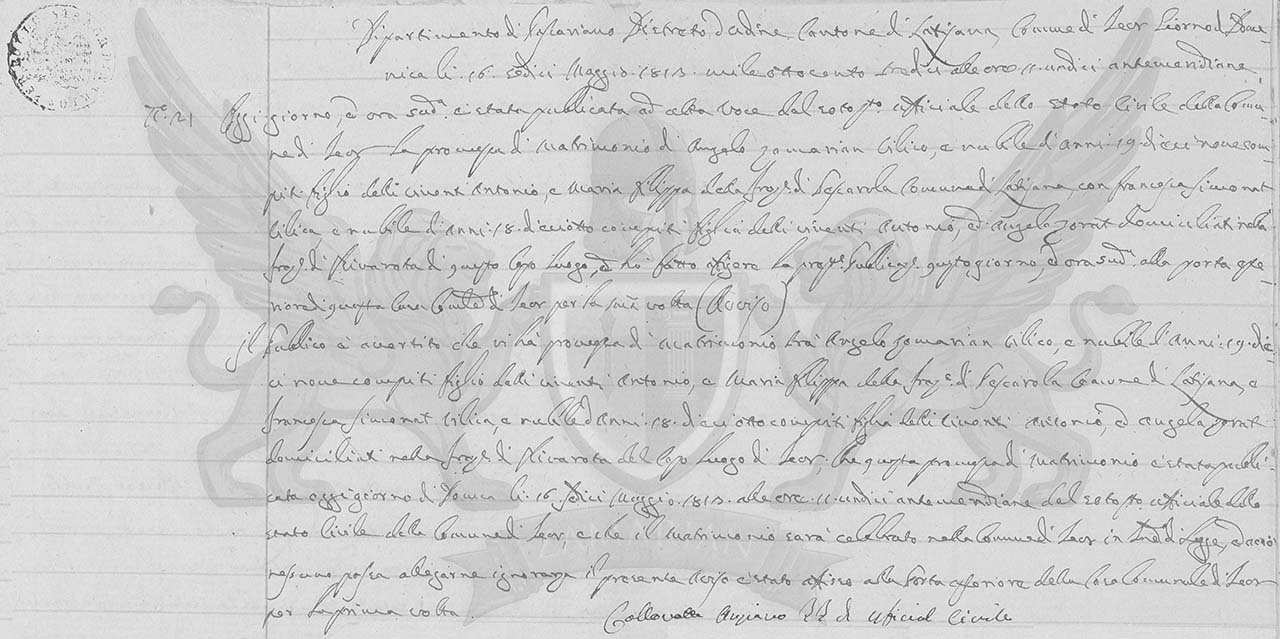 Dipartimento di Passariano Distreto d'Udine Cantone di Latisana, Comune di Teor Giorno di Dome
nica li 16 sedici Maggio 1813 mile ottocento tredici alle ore 11 undici antemeridiane
N.° 21 Oggi giorno, ed ora sud.ª è stata publicata ad alta voce dal sotos.to Ufficiale dello Stato Civile della Comu
ne di Teor la promessa di Matrimonio di Angelo Zomarian Cilico, e nubile di anni 19 dieci nove com
piti figlio delli viventi Antonio, e Maria Filippa della fraz.e di Pescarola Comune di Latisana, con Francesca Simonat
Cilica, e nubile d'anni 18 dieciotto compiti figlia delli viventi Antonio, ed Angela Zorat domiciliati nella
fraz.e di Rivarota di questo Capo Luogo, ed hò fatto afigere la pres.e Publicaz.e questo giorno, ed ora sud.ª alla porta este
riore di questa Casa Com.le di Teor per la prima volta (Aviso)
Il Publico è avertito che vi hà promessa di Matrimonio trà Angelo Zomarian Cilico, e nubile d'Anni 19 die
ci nove compiti figlio delli viventi Antonio, e Maria Filippa della fraz.e di Pescarola Comune di Latisana, e
Francesca Simonat Cilica, e nubile d'Anni 18 dieci otto compiti figlia delli viventi Antonio, ed Angela Zorat
domiciliati nella fraz.e di Rivarota del Capo Luogo di Teor che questa promessa di Matrimonio è stata publi
cata oggi giorno di Domen.ca li 16 sedici Maggio 1813 alle ore 11 undici antemeridiane dal sotos.to Ufficiale dello
Stato Civile della Comune di Teor, e che il Matrimonio sarà celebrato nella Comune di Teor in di Legge, ed acciò
nessuno possa allegarne ignoranza il presente Aviso è stato affisso alla Porta esteriore della Casa Comunale di Teor
per la prima volta Collovatti Anziano Uficial Civile